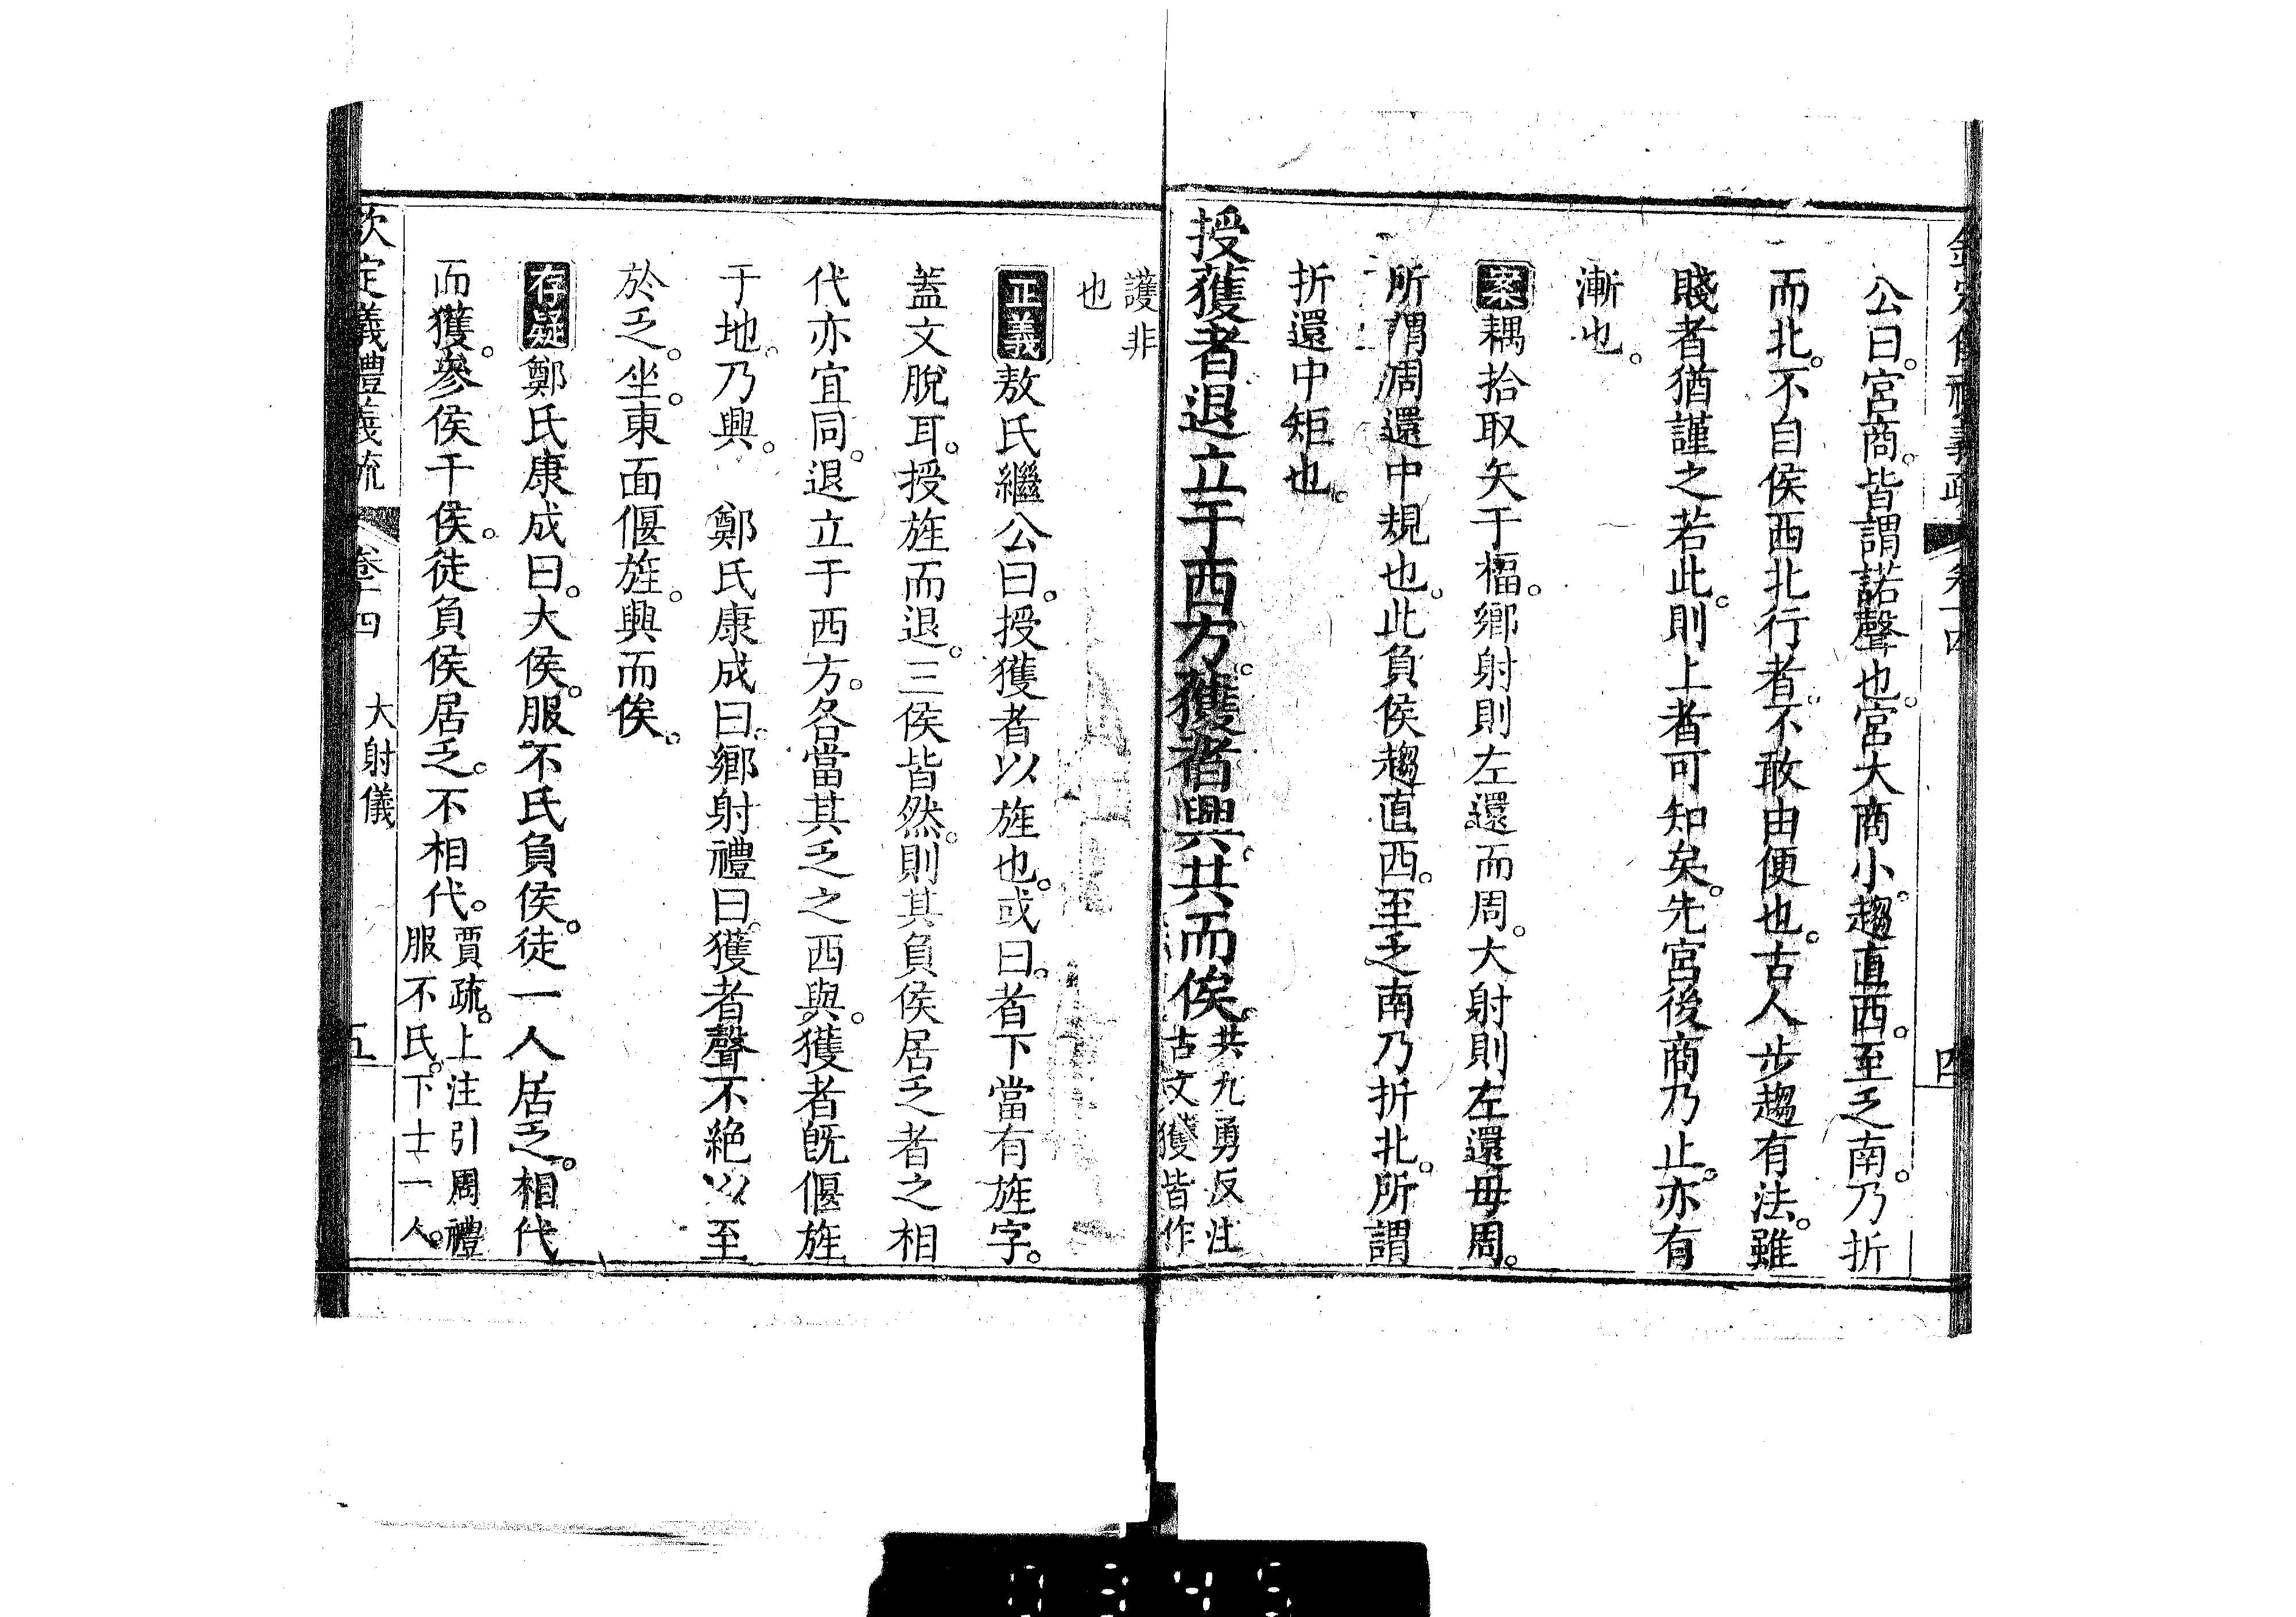 公曰。宮商。皆謂諾聲也。宮大商小。趨直西。至乏南。乃折
而北。不自侯西北行者。不敢由便也。古人步趨有法。雖
賤者猶謹之若此。則上者可知矣。先宮後商乃止。亦有
漸也。
案耦拾取矢于楅。鄉射則左還而周。大射則左還毋周。
所謂周還中規也。此負侯趨直西。至乏南乃折北。所謂
折還中矩也。
授獲者退立于西方。獲者興。共而俟。共九勇反注
古文獲皆作
護非
也
正義敖氏繼公曰。授獲者以旌也。或曰。者下當有旌字。
蓋文脫耳。授旌而退。三侯皆然。則其負侯居乏者之相
代亦宜同。退立于西方。各當其乏之西與。獲者旣偃旌
于地。乃興。 鄭氏康成曰。鄉射禮曰。獲者聲不絶以至
於乏。坐。東面偃旌。興而俟。
存疑鄭氏康成曰。大侯。服不氏負侯。徒一人居乏。相代
而獲。參侯干侯。徒負侯居乏。不相代。賈疏。上注引周禮
服不氏。下士一人。
欽定儀禮義疏
卷十四
大射儀
五
四